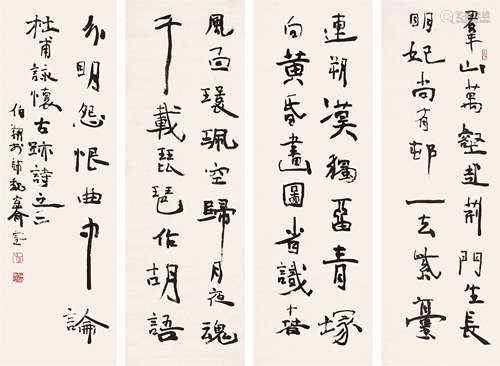 羣山萬壑赴荆門生長
明妃尚有邨一去紫臺
連朔漠獨留青塚
向黄昏畫圖省識春
風面環珮空歸月夜魂
千載琵琶作胡語
分明怨恨曲中論
杜甫詠懷古跡詩之三
伯翔於師魏齋